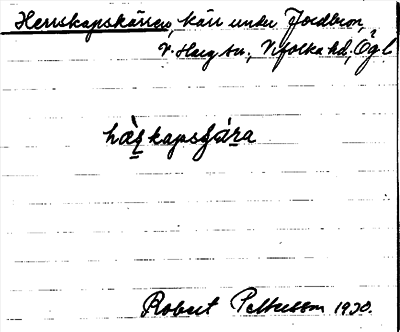 Herrskapskärren, kärr under Jordbron,
V. Harg sn., Vifolka hd, Ögl
hæ̀ʂkapsʂára
Robert Pettersson 1920.